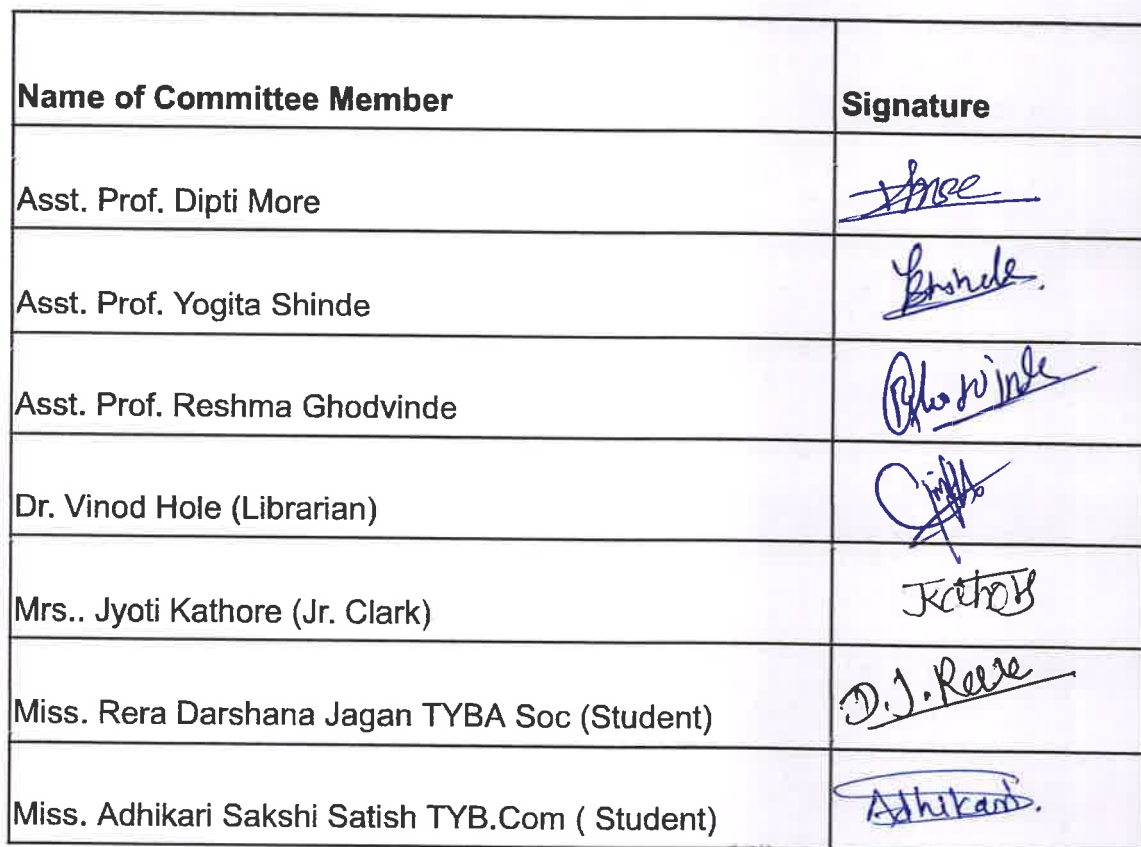 Name of Committee Member Signature
Asst. Prof. Dipti More
Asst. Prof. Yogita Shinde
Asst. Prof. Reshma Ghodvinde
Dr. Vinod Hole (Librarian)
Mrs.. Jyoti Kathore (Jr. Clark)
Miss. Rera Darshana Jagan TYBA Soc (Student) D.J. Rera
Miss. Adhikari Sakshi Satish TYB.Com ( Student) Adhikari.